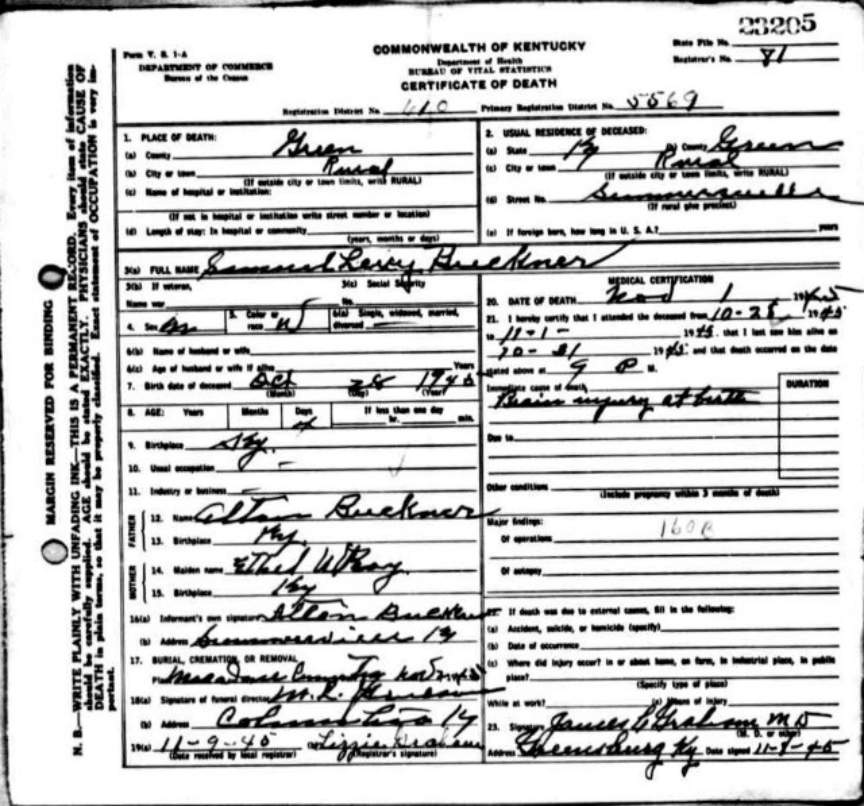 23205
Form V. S. 1-A
DEPARTMENT OF COMMERCE
Bureau of the Census
COMMONWEALTH OF KENTUCKY
Department of Health
BUREAU OF VITAL STATISTICS
CERTIFICATE OF DEATH
State File No.
Registrar's No. 81
Registration District No. 410 Primary Registration District No. 5569
MARGIN RESERVED FOR BINDING
N. B.—WRITE PLAINLY WITH UNFADING INK—THIS IS A PERMANENT RECORD. Every item of information
should be carefully supplied. AGE should be stated EXACTLY. PHYSICIANS should state CAUSE OF
DEATH in plain terms, so that it may be properly classified. Exact statement of OCCUPATION is very im-
portant.
1. PLACE OF DEATH:
(a) County Green
(b) City or town Rural
(If outside city or town limits, write RURAL)
(c) Name of hospital or institution:
(If not in hospital or institution write street number or location)
(d) Length of stay: In hospital or community
(years, months or days)
2. USUAL RESIDENCE OF DECEASED:
(a) State Ky (b) County Green
(c) City or town Rural
(If outside city or town limits, write RURAL)
(d) Street No. Summersville
(If rural give precinct)
(e) If foreign born, how long in U. S. A.? years
3(a) FULL NAME Samuel Leroy Buckner
3(b) If veteran,
Name war
3(c) Social Security
No.
4. Sex M 5. Color or race W 6(a) Single, widowed, married, divorced
6(b) Name of husband or wife
6(c) Age of husband or wife if alive Years
7. Birth date of deceased Oct 28 1945
(Month) (Day) (Year)
8. AGE: Years Months Days 4 If less than one day
hr. min.
9. Birthplace Ky.
10. Usual occupation -
11. Industry or business -
FATHER
12. Name Alton Buckner
13. Birthplace Ky.
MOTHER
14. Maiden name Ethel
15. Birthplace Ky
16(a) Informant's own signature Alton Buckner
(b) Address Summersville Ky
17. BURIAL, CREMATION, OR REMOVAL
18(a) Signature of funeral director M. L.
(b) Address Columbia Ky
19(a) 11-9-45 (b) Lizzie Graham
(Date received by local registrar) (Registrar's signature)
MEDICAL CERTIFICATION
20. DATE OF DEATH Nov 1 1945
21. I hereby certify that I attended the deceased from 10-28 1945
to 11-1- 1945. that I last saw him alive on
10-31 1945 and that death occurred on the date
stated above at 9 P M.
Immediate cause of death
Brain injury at birth
DURATION
Due to
Other conditions
(Include pregnancy within 3 months of death)
Major findings:
Of operations
160
Of autopsy
22. If death was due to external causes, fill in the following:
(a) Accident, suicide, or homicide (specify)
(b) Date of occurrence
(c) Where did injury occur? in or about home, on farm, in industrial place, in public
place?
(Specify type of place)
While at work? (e) Means of injury
23. Signature James C Graham MD
(M. D. or other)
Address Greensburg Ky. Date signed 11-9-45